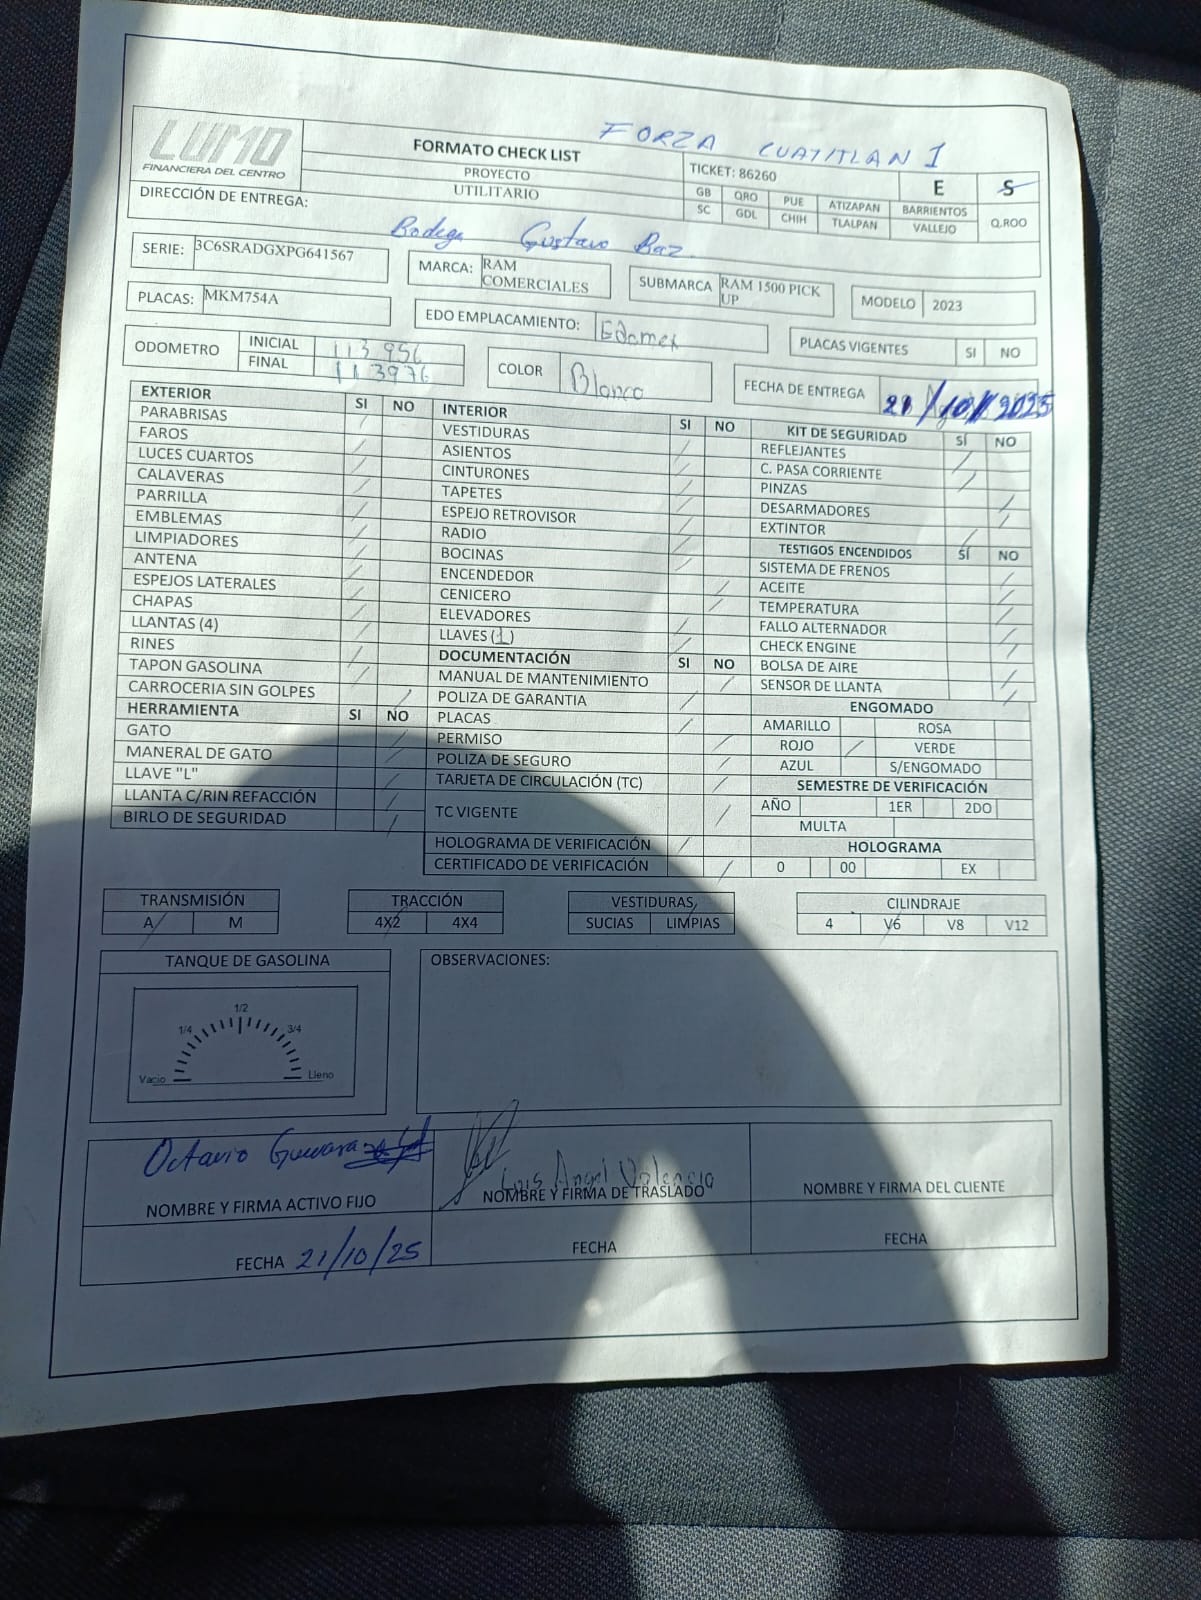 FORZA CUATITLAN I
LUMO
FINANCIERA DEL CENTRO
FORMATO CHECK LIST
PROYECTO
UTILITARIO
TICKET: 86260
E S
GB QRO PUE ATIZAPAN BARRIENTOS Q.ROO
SC GDL CHIH TLALPAN VALLEJO
DIRECCIÓN DE ENTREGA:
Bodega Gustavo Baz
SERIE: 3C6SRADGXPG641567
MARCA: RAM COMERCIALES
SUBMARCA RAM 1500 PICK UP
MODELO 2023
PLACAS: MKM754A
EDO EMPLACAMIENTO: Edomex
PLACAS VIGENTES SI NO
ODOMETRO
INICIAL 113956
FINAL 113976
COLOR Blanco
FECHA DE ENTREGA 21/10/2025
EXTERIOR SI NO
PARABRISAS
FAROS
LUCES CUARTOS
CALAVERAS
PARRILLA
EMBLEMAS
LIMPIADORES
ANTENA
ESPEJOS LATERALES
CHAPAS
LLANTAS (4)
RINES
TAPON GASOLINA
CARROCERIA SIN GOLPES
HERRAMIENTA SI NO
GATO
MANERAL DE GATO
LLAVE "L"
LLANTA C/RIN REFACCIÓN
BIRLO DE SEGURIDAD
INTERIOR SI NO
VESTIDURAS
ASIENTOS
CINTURONES
TAPETES
ESPEJO RETROVISOR
RADIO
BOCINAS
ENCENDEDOR
CENICERO
ELEVADORES
LLAVES (1)
DOCUMENTACIÓN SI NO
MANUAL DE MANTENIMIENTO
POLIZA DE GARANTIA
PLACAS
PERMISO
POLIZA DE SEGURO
TARJETA DE CIRCULACIÓN (TC)
TC VIGENTE
HOLOGRAMA DE VERIFICACIÓN
CERTIFICADO DE VERIFICACIÓN
KIT DE SEGURIDAD SÍ NO
REFLEJANTES
C. PASA CORRIENTE
PINZAS
DESARMADORES
EXTINTOR
TESTIGOS ENCENDIDOS SÍ NO
SISTEMA DE FRENOS
ACEITE
TEMPERATURA
FALLO ALTERNADOR
CHECK ENGINE
BOLSA DE AIRE
SENSOR DE LLANTA
ENGOMADO
AMARILLO ROSA
ROJO VERDE
AZUL S/ENGOMADO
SEMESTRE DE VERIFICACIÓN
AÑO 1ER 2DO
MULTA
HOLOGRAMA
0 00 EX
TRANSMISIÓN
A M
TRACCIÓN
4X2 4X4
VESTIDURAS
SUCIAS LIMPIAS
CILINDRAJE
4 V6 V8 V12
TANQUE DE GASOLINA
1/2
1/4 3/4
Vacio Lleno
OBSERVACIONES:
Octavio Guevara
NOMBRE Y FIRMA ACTIVO FIJO
FECHA 21/10/25
Luis Angel Valencia
NOMBRE Y FIRMA DE TRASLADO
FECHA
NOMBRE Y FIRMA DEL CLIENTE
FECHA